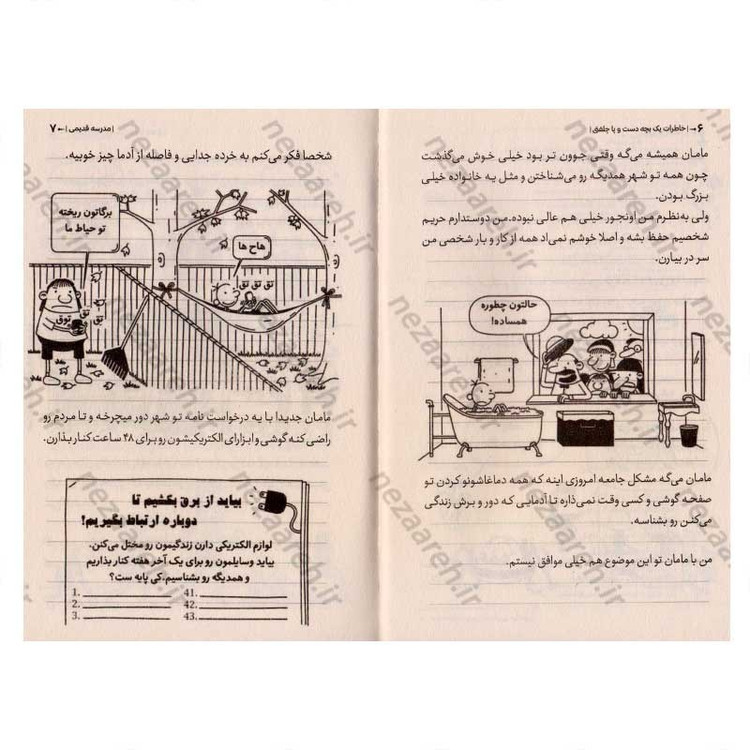 ۶ →| خاطرات یک بچه دست و پا چلفتی |
مامان همیشه می‌گه وقتی جوون تر بود خیلی خوش می‌گذشت
چون همه تو شهر همدیگه رو می‌شناختن و مثل یه خانواده خیلی
بزرگ بودن.
ولی به‌نظرم من اونجور خیلی هم عالی نبوده.من دوستدارم حریم
شخصیم حفظ بشه و اصلا خوشم نمی‌اد همه از کار و بار شخصی من
سر در بیارن.
حالتون چطوره
همساده!
مامان می‌گه مشکل جامعه امروزی اینه که همه دماغاشونو کردن تو
صفحه گوشی و کسی وقت نمی‌ذاره تا آدمایی که دور و برش زندگی
می‌کنن رو بشناسه.
من با مامان تو این موضوع هم خیلی موافق نیستم.
| مدرسه قدیمی |← ۷
شخصا فکر می‌کنم یه خرده جدایی و فاصله از آدما چیز خوبیه.
برگاتون ریخته
تو حیاط ما
هاح ها
تق تق تق
تق
توق
تق
مامان جدیدا با یه درخواست نامه تو شهر دور میچرخه و تا مردم رو
راضی کنه گوشی و ابزارای الکتریکیشون رو برای ۴۸ ساعت کنار بذارن.
بیاید از برق بکشیم تا
دوباره ارتباط بگیریم!
لوازم الکتریکی دارن زندگیمون رو مختل می‌کنن.
بیاید وسایلمون رو برای یک آخر هفته کنار بذاریم
و همدیگه رو بشناسیم.کی پایه ست؟
1. 41.
2. 42.
3. 43.
nezaareh.ir